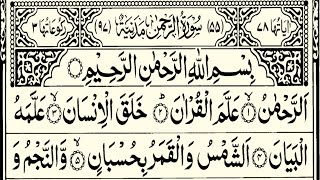 اٰیَاتُهَا ۷۸ (۵۵) سُوْرَةُ الرَّحْمٰنِ مَدَنِیَّةٌ (۹۷) رُكُوْعَاتُهَا ۳
بِسْمِ اللّٰهِ الرَّحْمٰنِ الرَّحِیْمِ
اَلرَّحْمٰنُ ۙ﴿۱﴾ عَلَّمَ الْقُرْاٰنَ ؕ﴿۲﴾ خَلَقَ الْاِنْسَانَ ۙ﴿۳﴾ عَلَّمَهُ
الْبَیَانَ ﴿۴﴾ اَلشَّمْسُ وَالْقَمَرُ بِحُسْبَانٍ ۪﴿۵﴾ وَّالنَّجْمُ وَ